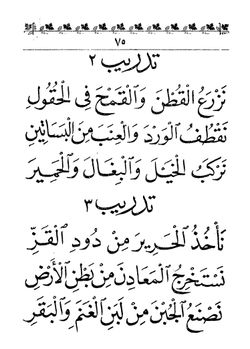 ٧٥
تدريب ٢
نَزْرَعُ الْقُطْنَ وَالْقَمْحَ فِى الْحُقُولِ
نَقْطُفُ الْوَرْدَ وَالْعِنَبَ مِنَ الْبَسَاتِينِ
نَرْكَبُ الْخَيْلَ وَالْبِغَالَ وَالْحَمِيرَ
تدريب ٣
نَأْخُذُ الْحَرِيرَ مِنْ دُودِ الْقَزِّ
نَسْتَخْرِجُ الْمَعَادِنَ مِنْ بَطْنِ الْأَرْضِ
نَصْنَعُ الْجُبْنَ مِنْ لَبَنِ الْغَنَمِ وَالْبَقَرِ